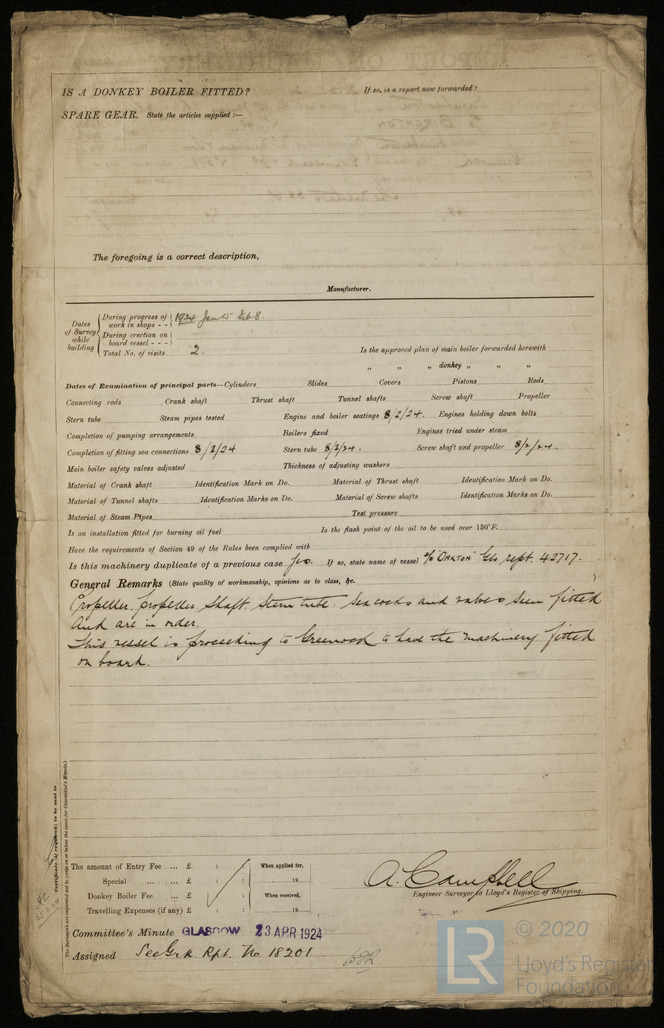 IS A DONKEY BOILER FITTED? If so, is a report now forwarded?
SPARE GEAR. State the articles supplied :—
The foregoing is a correct description,
Manufacturer.
Dates of Survey while building
During progress of work in shops - - 1924 Jan 15 Feb 8.
During erection on board vessel - - -
Total No. of visits 2.
Is the approved plan of main boiler forwarded herewith
" " " donkey " " "
Dates of Examination of principal parts—Cylinders Slides Covers Pistons Rods
Connecting rods Crank shaft Thrust shaft Tunnel shafts Screw shaft Propeller
Stern tube Steam pipes tested Engine and boiler seatings 8/2/24. Engines holding down bolts
Completion of pumping arrangements Boilers fixed Engines tried under steam
Completion of fitting sea connections 8/2/24 Stern tube 8/2/24. Screw shaft and propeller 8/2/24.
Main boiler safety valves adjusted Thickness of adjusting washers
Material of Crank shaft Identification Mark on Do. Material of Thrust shaft Identification Mark on Do.
Material of Tunnel shafts Identification Marks on Do. Material of Screw shafts Identification Marks on Do.
Material of Steam Pipes Test pressure
Is an installation fitted for burning oil fuel Is the flash point of the oil to be used over 150°F.
Have the requirements of Section 49 of the Rules been complied with
Is this machinery duplicate of a previous case Yes. If so, state name of vessel S/S OAKTON Gls rept. 42717.
General Remarks (State quality of workmanship, opinions as to class, &c. )
Propeller, propeller shaft, stern tube, sea cocks and valves seen fitted
and are in order.
This vessel is proceeding to Greenock to have the machinery fitted
on board.
Certificate (if required) to be sent to
(The Surveyors are requested not to write on or below the space for Committee's Minute.)
The amount of Entry Fee ... £ : : When applied for,
Special ... ... £ : : 19
Donkey Boiler Fee ... £ : : When received,
Travelling Expenses (if any) £ : : 19
A. Campbell
Engineer Surveyor to Lloyd's Register of Shipping.
Committee's Minute GLASGOW 23 APR 1924
Assigned See Grk. Rpt. No 18201
LR
© 2020
Lloyd's Register
Foundation